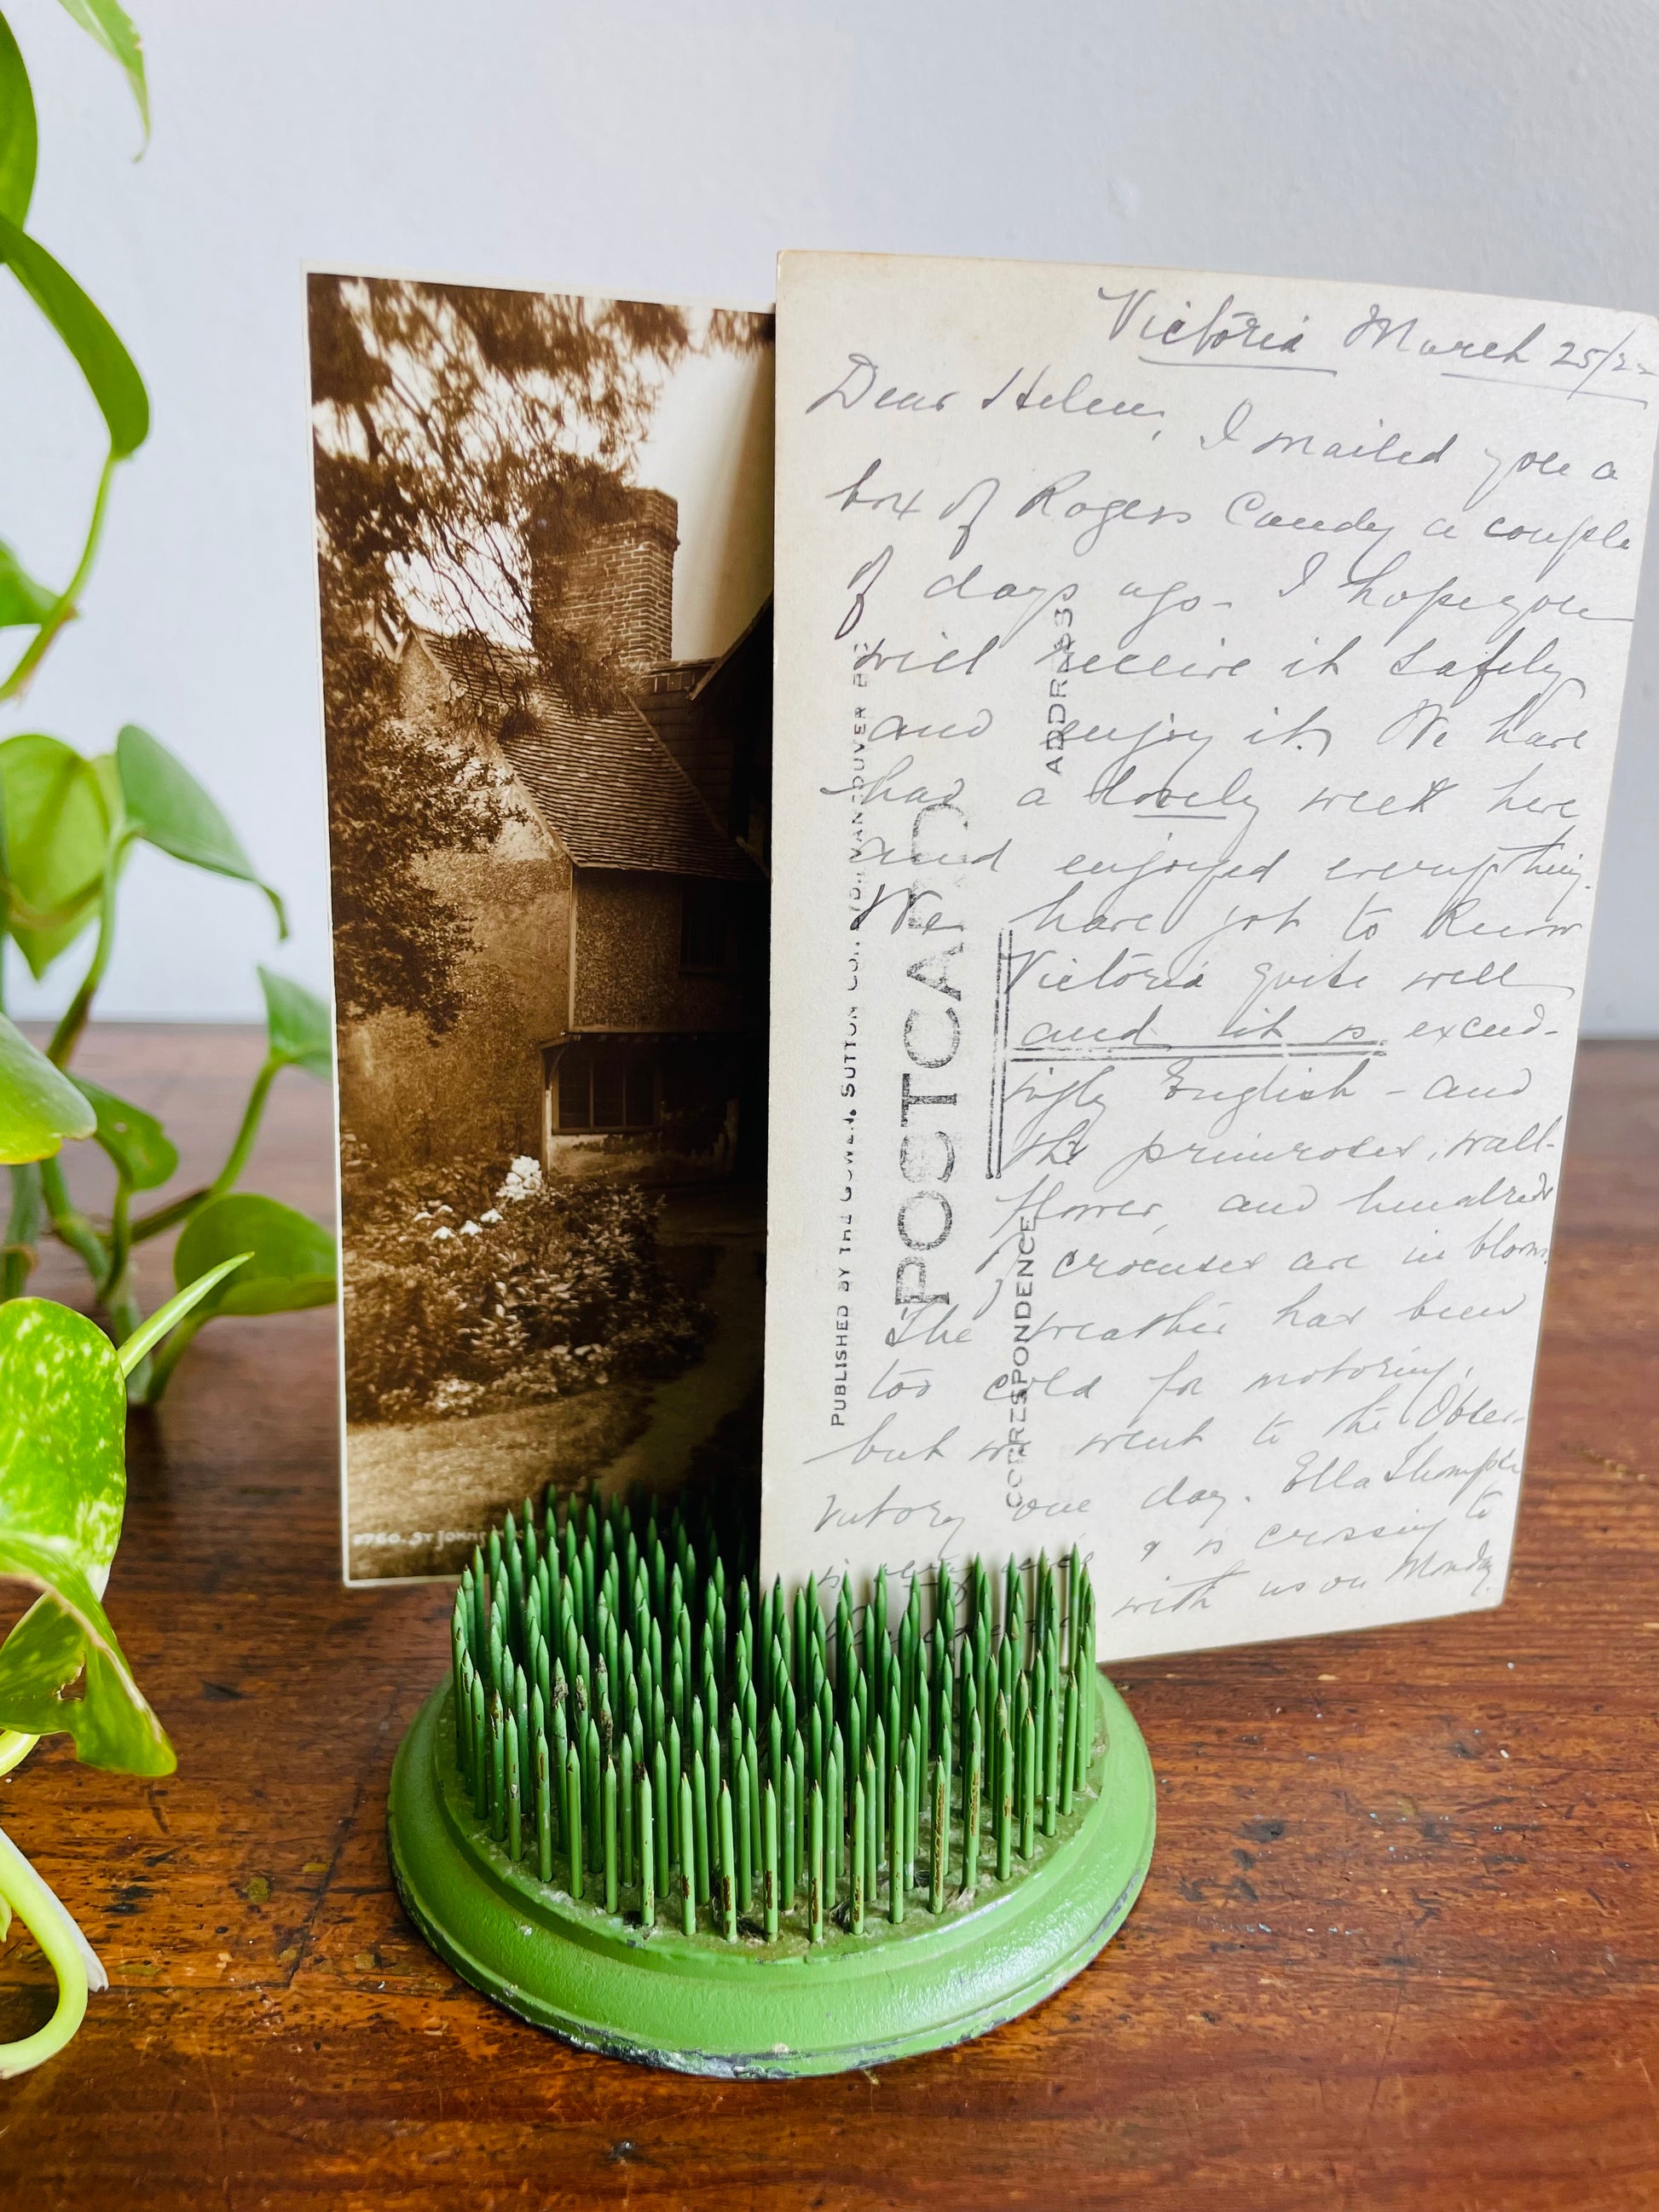 Victoria March 25/22
Dear Helen, I mailed you a
box of Rogers Candy a couple
of days ago - I hope you
will receive it safely
and enjoy it. We have
had a lovely week here
and enjoyed everything.
We have got to know
Victoria quite well
and it is exceed-
ingly English - and
the primroses, wall-
flower, and hundreds
of crocuses are in bloom.
The weather has been
too cold for motoring,
but we went to the Obser-
vatory one day. Ella Thompson
is & is crossing to
with us on Monday
PUBLISHED BY THE GOWEN, SUTTON CO. LTD., VANCOUVER B.C.
POSTCARD
CORRESPONDENCE
ADDRESS
ST JOHN